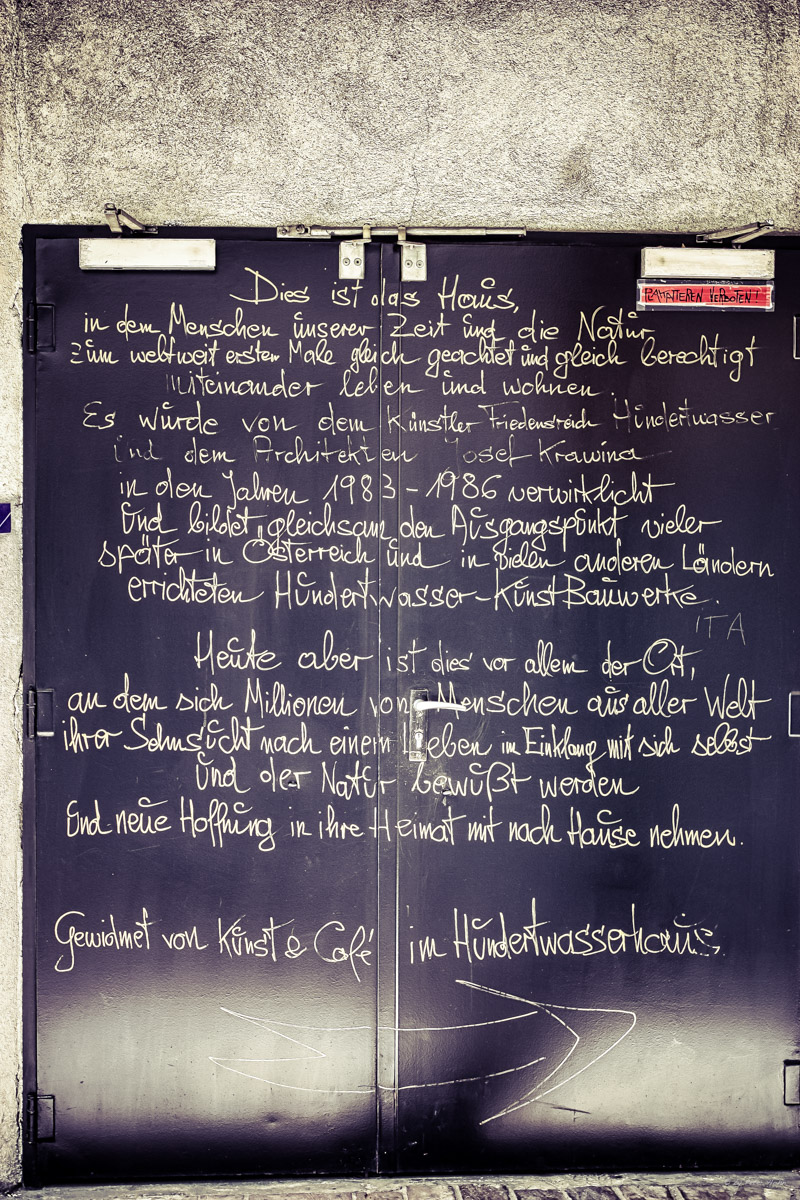 PLAKATIEREN VERBOTEN!
Dies ist das Haus,
in dem Menschen unserer Zeit und die Natur
zum weltweit ersten Male gleich geachtet und gleich berechtigt
miteinander leben und wohnen
Es wurde von dem Künstler Friedensreich Hundertwasser
und dem Architekten Josef Krawina
in den Jahren 1983-1986 verwirklicht
und bildet gleichsam den Ausgangspunkt vieler
später in Österreich und in vielen anderen Ländern
errichteten Hundertwasser-KunstBauwerke.
ITA
Heute aber ist dies vor allem der Ort,
an dem sich Millionen von Menschen aus aller Welt
ihrer Sehnsucht nach einem Leben im Einklang mit sich selbst
und der Natur bewußt werden
und neue Hoffnung in ihre Heimat mit nach Hause nehmen.
Gewidmet von Kunst & Café im Hundertwasserhaus